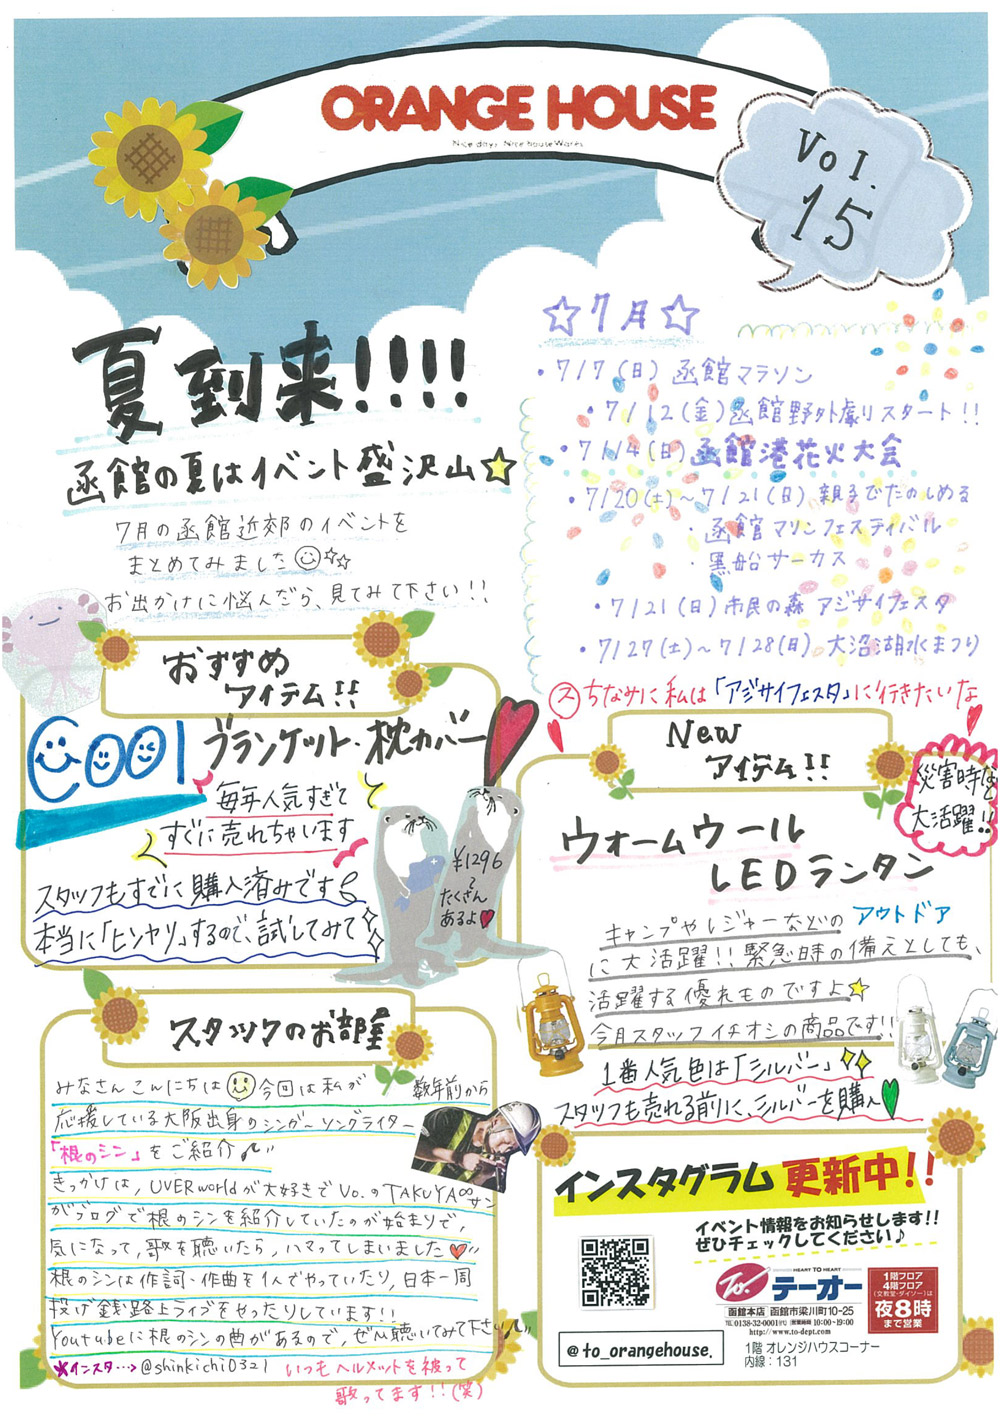 ORANGE HOUSE
Nice days Nice houseWares
Vol.
15
夏到来!!!!
函館の夏はイベント盛沢山☆
7月の函館近郊のイベントを
まとめてみました☺☆☆
お出かけに悩んだら、見てみて下さい!!
☆7月☆
・7/7(日)函館マラソン
・7/12(金)函館野外劇スタート!!
・7/14(日)函館港花火大会
・7/20(土)~7/21(日)親子でたのしめる
・函館マリンフェスティバル
・黒船サーカス
・7/21(日)市民の森 アジサイフェスタ
・7/27(土)~7/28(日)大沼湖水まつり
ちなみに私は「アジサイフェスタ」に行きたいな
おすすめ
アイテム!!
COOl ブランケット・枕カバー
毎年人気すぎて
すぐに売れちゃいます
スタッフもすでに購入済みです
本当に「ヒンヤリ」するので、試してみて
¥1296
~
たくさん
あるよ♥
New
アイテム!!
災害時など
大活躍!!
ウォームウール
LEDランタン
キャンプやレジャーなどの アウトドア
に大活躍!!緊急時の備えとしても、
活躍する優れものですよ☆
今月スタッフイチオシの商品です!!
1番人気色は「シルバー」
スタッフも売れる前に、シルバーを購入
スタッフのお部屋
みなさんこんにちは☺今回は私が 数年前から
応援している大阪出身のシンガーソングライター
「根のシン」をご紹介♪"
きっかけは、UVERworldが大好きでVo.のTAKUYA∞サン
がブログで根のシンを紹介していたのが始まりで、
気になって、歌を聴いたら、ハマってしまいました♥"
根のシンは作詞・作曲を1人でやっていたり、日本一周
投げ銭路上ライブをやったりしています!!
Youtubeに根のシンの曲があるので、ぜひ聴いてみて下さい♪"
*インスタ…→@shinkichi0321 いつもヘルメットを被って
歌ってます!!(笑)
インスタグラム 更新中!!
イベント情報をお知らせします!!
ぜひチェックしてください♪
HEART TO HEART
To. テーオー
函館本店 函館市梁川町10-25
TEL 0138-32-0001㈹ [営業時間] 10:00~19:00
http://www.to-dept.com
1階フロア
4階フロア
(文教堂・ダイソー)は
夜8時
まで営業
1階 オレンジハウスコーナー
内線:131
@to_orangehouse.